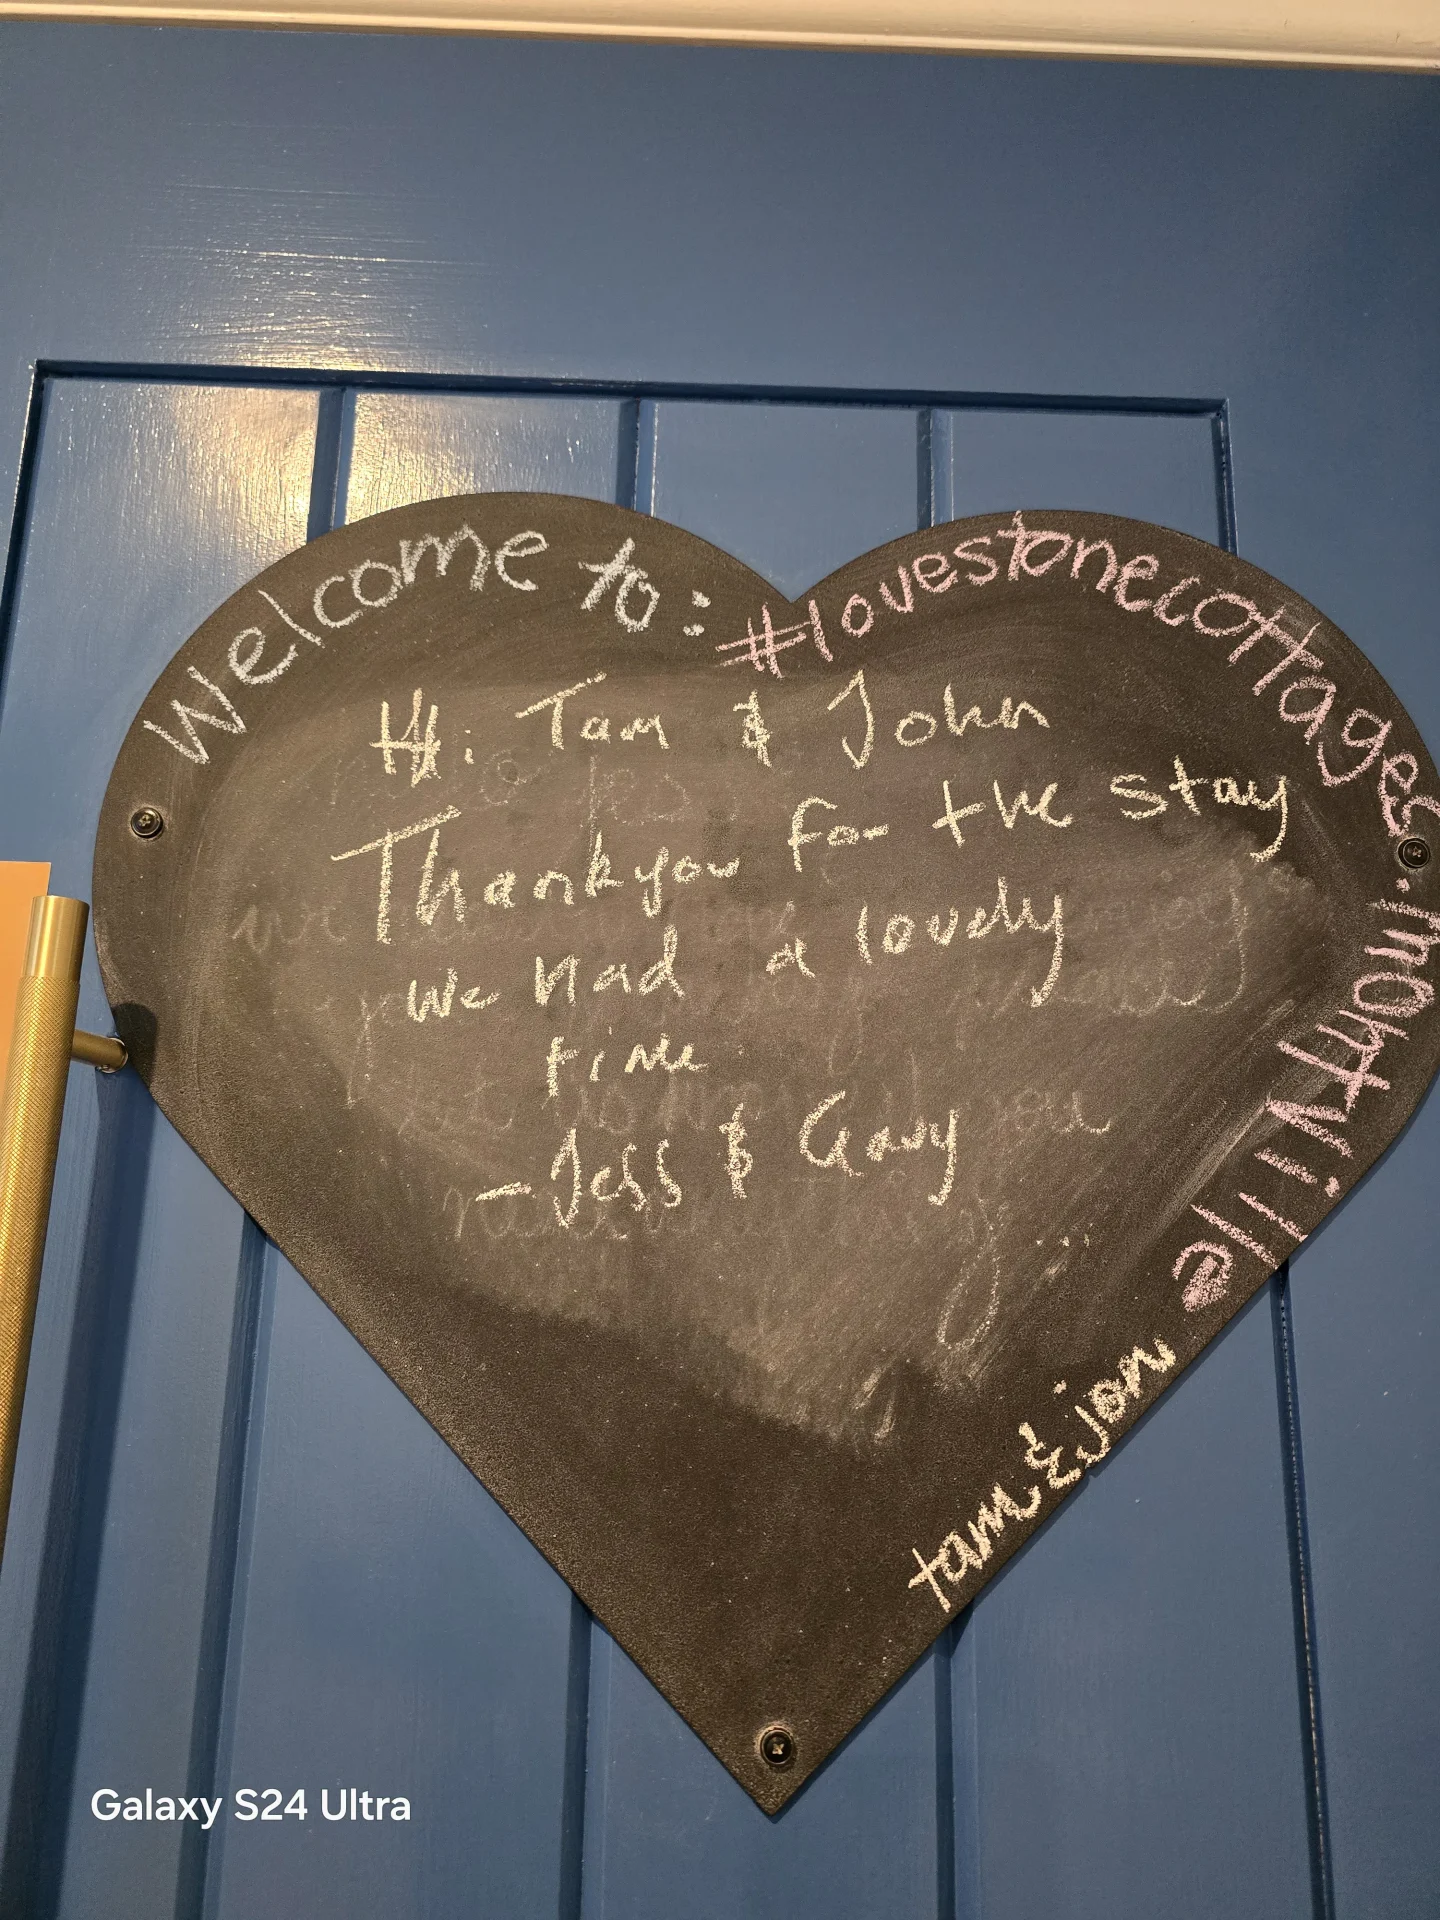 Welcome to:
#lovestonecottages
.morttville
Hi Tam & John
Thankyou for the stay
We had a lovely
time
- Jess & Gavy
tam & jon
Galaxy S24 Ultra